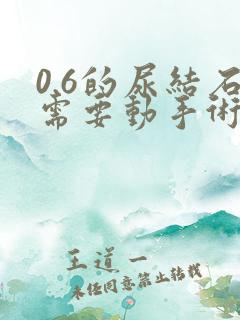 06的尿結石
需要動手術
王道一
未经同意禁止转载